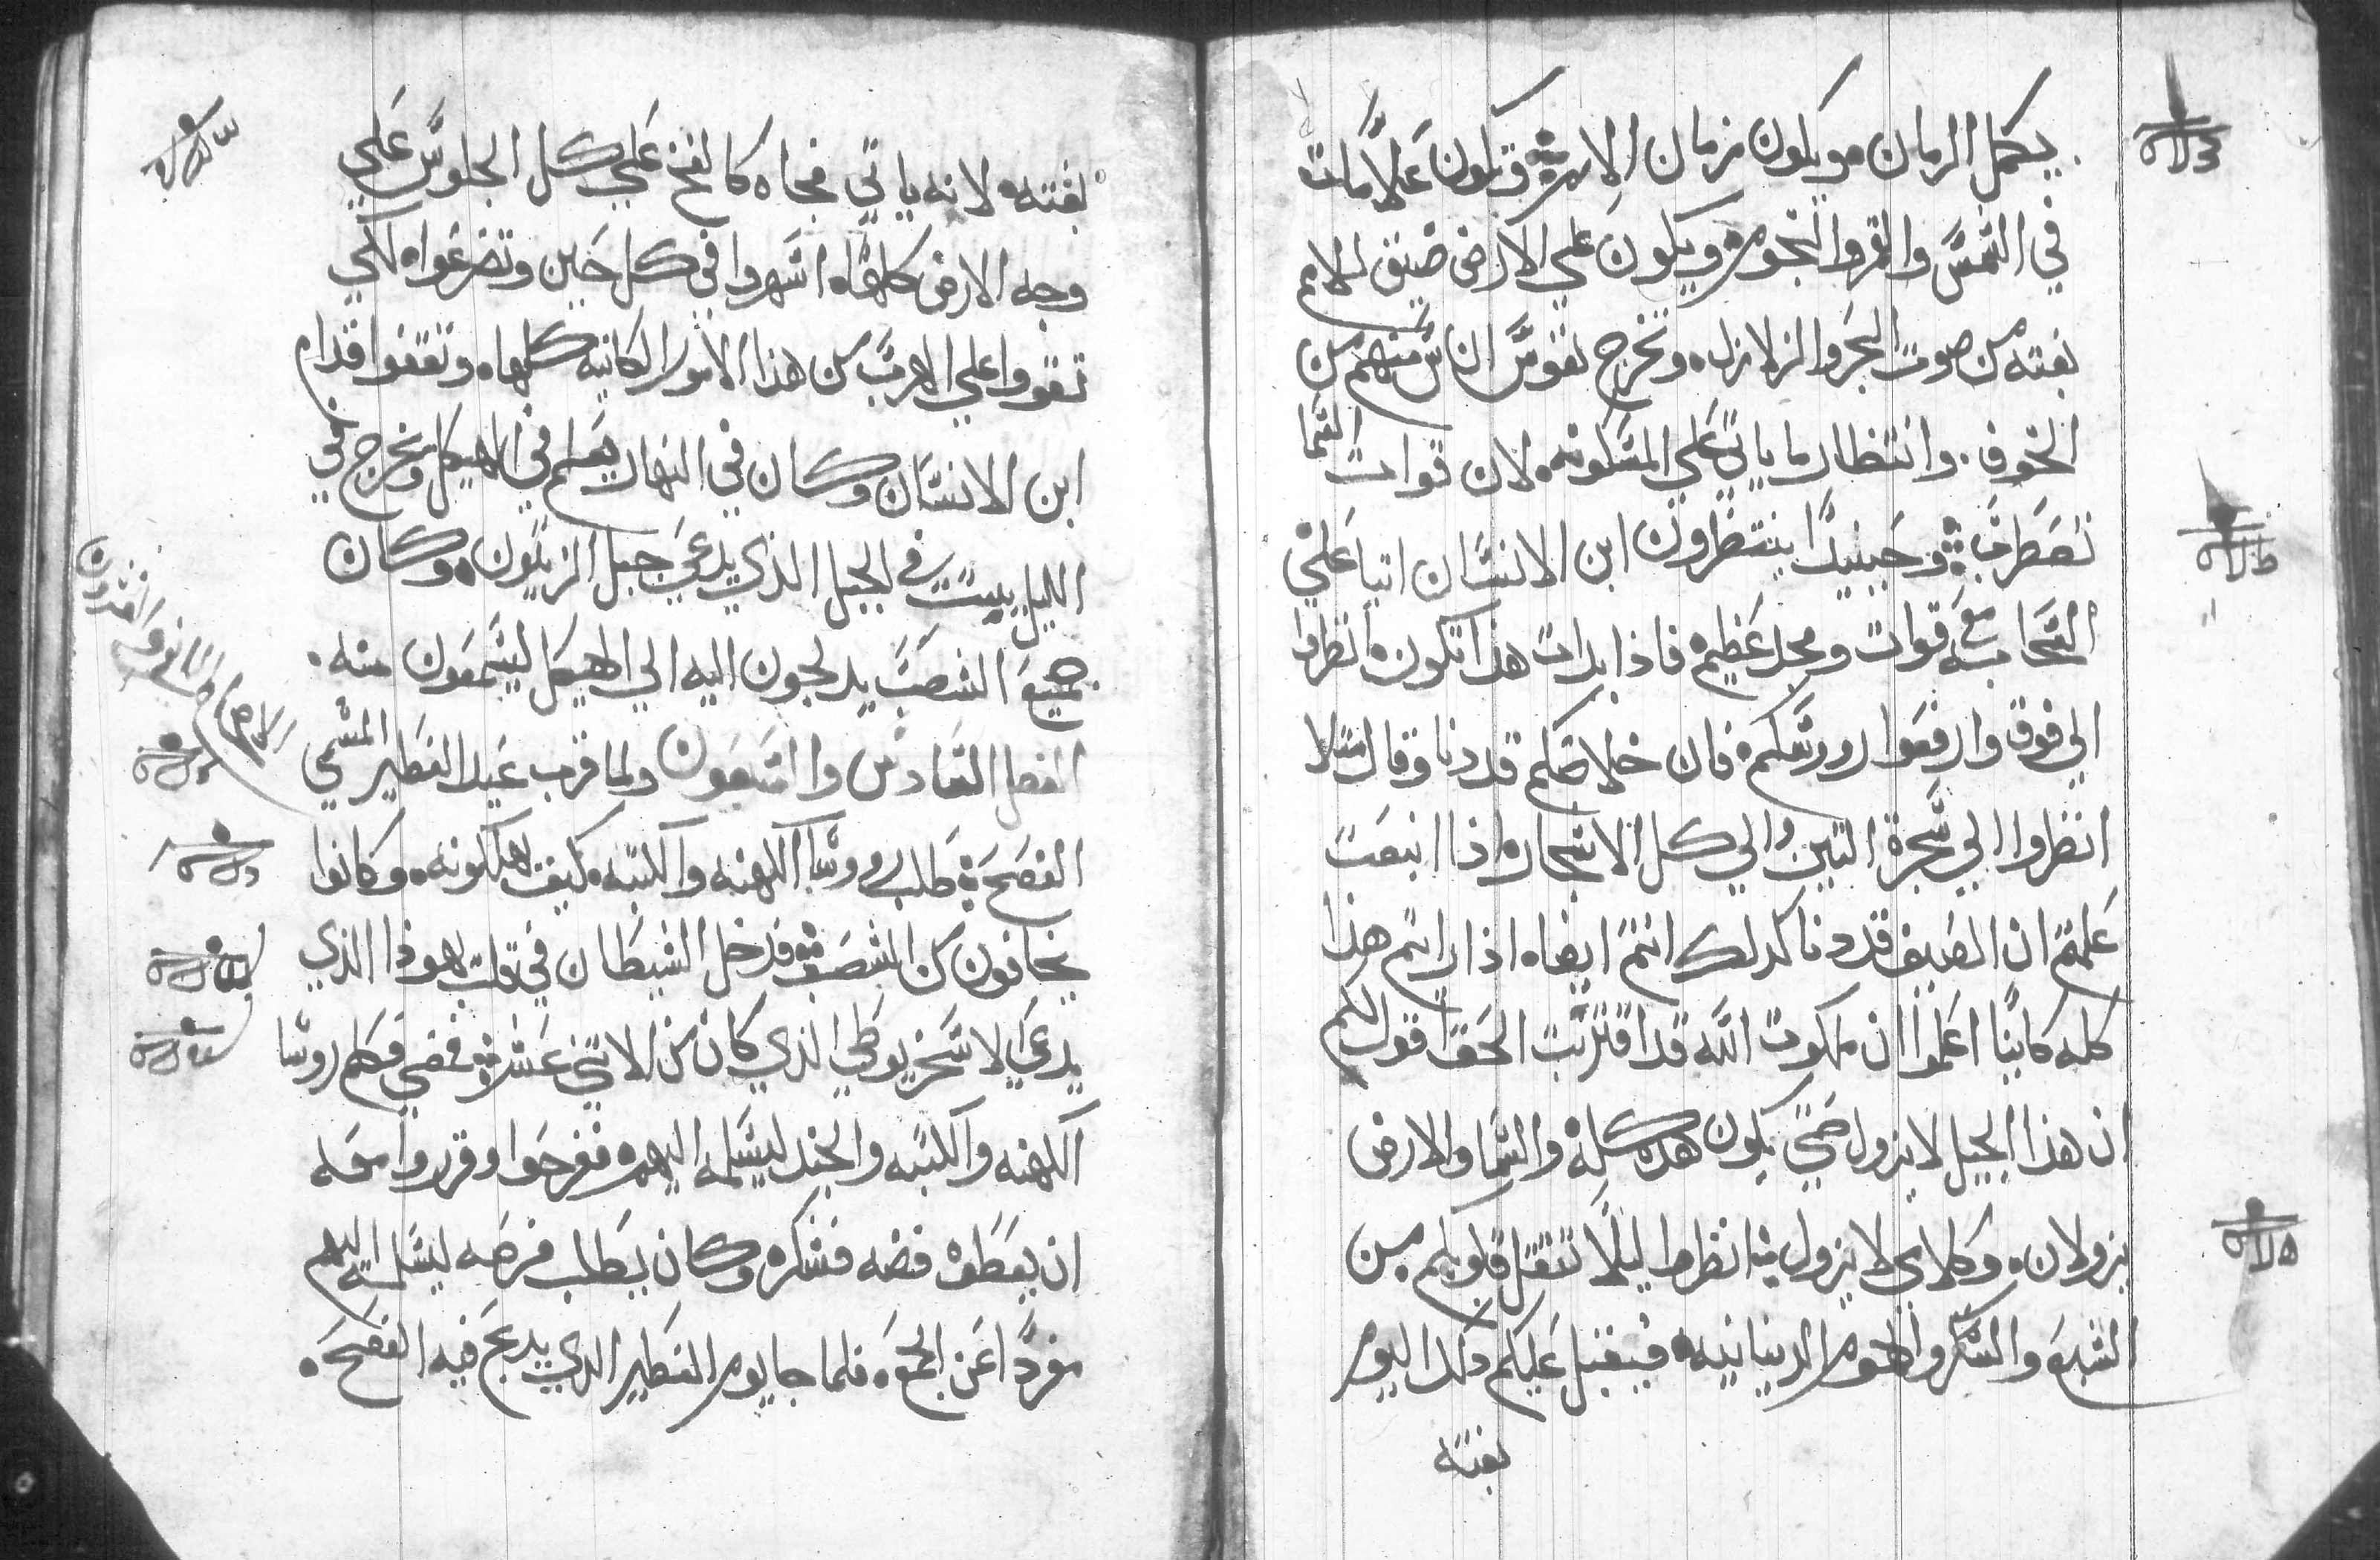 يكمل الزمان ويكون زمان الامم وتكون علامات
في الشمس والقمر والنجوم ويكون علي الارض ضيق للامم
بغته من صوت البحر والزلازل وتخرج نفوس الناس منهم من
الخوف وانتظار ما ياتي علي المسكونه لان قوات السما
تضطرب وحينيدٍ ينتظرون ابن الانسان اتيا علي
السحاب مع قوات ومجد عظيم فاذا بدات هذا تكون انظروا
الي فوق وارفعوا رووسكم فان خلاصكم قد دنا وقال مثلا
انظروا الي شجرة التين والي كل الاشجار اذا اينعت
علمتم ان الصيف قد دنا كدلك انتم ايضا اذا رايتم هذا
كله كاينًا اعلموا ان ملكوت الله قد اقتربت الحق اقول لكم
ان هذا الجيل لا يزول حتي يكون هذه كله والسما والارض
يزولان وكلامي لا يزول انظروا ليلا تثقل قلوبكم من
الشبع والسكر والهموم الدنيانيه فيقبل عليكم دلك اليوم
بغته
بغته لانه ياتي فجاه كالفخ علي كل الجلوس علي
وجه الارض كلها اسهروا في كل حين وتضرعوا لكي
تقووا علي الهرب من هذا الامور الكاينه كلها وتقفوا قدام
ابن الانسان وكان في النهار يعلم في الهيكل ويخرج في
الليل يبيت في الجبل الذي يدعي جبل الزيتون وكان
جميع الشعب يدلجون اليه الي الهيكل ليسمعون منه
الفصل السادس والسبعون ولما قرب عيد الفطير المسمي
الفصح طلب روسا الكهنه والكتبه كيف يهلكونه وكانوا
يخافون من الشعب فدخل الشيطان في قلب يهوذا الذي
يدعي لاسخريوطي الذي كان من الاثني عشر فمضي فكلم روسا
الكهنه والكتبه والجند ليسلمه اليهم ففرحوا وقرروا معه
ان يعطوه فضه فشكر وكان يطلب فرصه ليسلمه اليهم
مفردًا عن الجمع فلما جا يوم الفطير الدي يدبح فيه الفصح